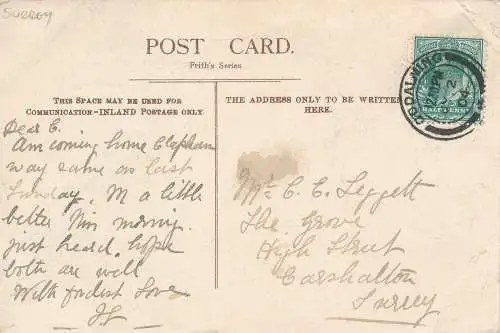 SURREY
POST CARD.
Frith's Series
THIS SPACE MAY BE USED FOR
COMMUNICATION—INLAND POSTAGE ONLY.
Dear C.
Am coming home Clapham
way same as last
Sunday. M a little
better this morning.
just heard. hope
both are well
With fondest Love
THE ADDRESS ONLY TO BE WRITTEN
HERE.
Mr C. C. Leggett
The Grove
High Street
Carshalton
Surrey
GODALMING
HALFPENNY